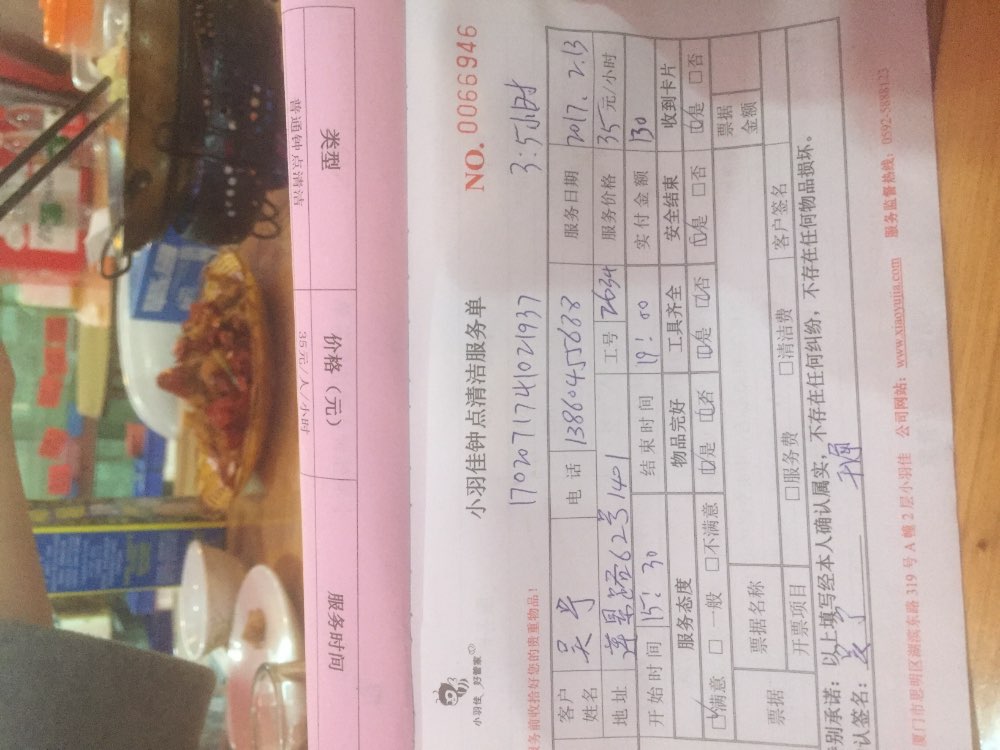 类型
价格（元）
服务时间
普通钟点清洁
35元/人/小时
小羽佳 好管家
小羽佳钟点清洁服务单
NO. 0066946
17020717741021937
3:5小时
服务前收拾好您的贵重物品！
客户姓名 吴宇 电话 13860455888 服务日期 2017.2.13
地址 莲景路62号1401 工号 7634 服务价格 35元/小时
开始时间 15:30 结束时间 19:00 实付金额 130
服务态度 物品完好 工具齐全 安全结束 收到卡片
☑满意 □一般 □不满意 ☑是 □否 ☑是 □否 ☑是 □否 ☑是 □否
票据 票据名称 票据金额
开票项目 □服务费 □清洁费 客户签名
别承诺：以上填写经本人确认属实，不存在任何纠纷，不存在任何物品损坏。
认签名：
厦门市思明区湖滨东路319号A幢2层小羽佳 公司网站：www.xiaoyujia.com 服务监督热线：0592-5888123